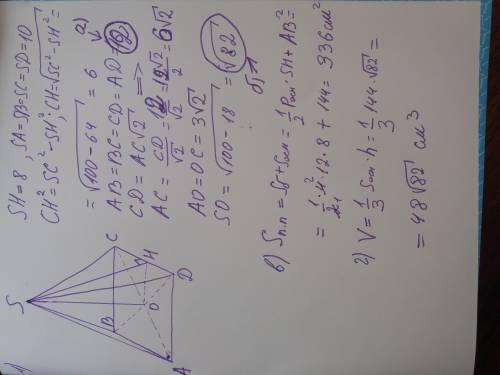 1)
S
B
C
H
O
A
D
SH = 8, SA=SB=SC=SD=10
CH² = SC² - SH²; CH = √SC² - SH² =
= √100 - 64 = 6 a)
AB = BC = CD = AD = 12
CD = AC√2 =>
AC = CD/√2 = 12/√2 = 12√2/2 = 6√2
AO = OC = 3√2
SO = √100 - 18 = √82 б)
в) Sп.п = Sб + Sосн = 1/2 Pосн · SH + AB² =
= 1/2 · 4 · 12 · 8 + 144 = 336 см²
г) V = 1/3 Sосн · h = 1/3 144 · √82 =
= 48√82 см³